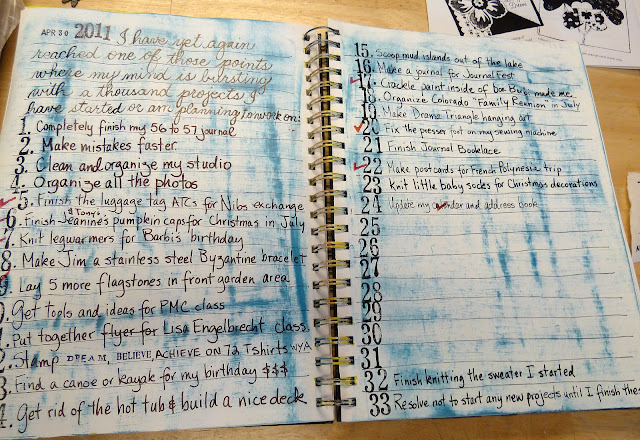 APR 30 2011 I have yet again
reached one of those points
where my mind is bursting
with a thousand projects I
have started or am planning to work on:
1. Completely finish my 56 to 57 journal
2. Make mistakes faster
3. Clean and organize my studio
4. Organize all the photos
5. Finish the luggage tag ATCs for Nibs exchange
& Tony's
6. Finish Jeanine's pumpkin caps for Christmas in July
7. Knit legwarmers for Barbi's birthday
8. Make Jim a stainless steel Byzantine bracelet
9. Lay 5 more flagstones in front garden area
0. Get tools and ideas for PMC class
. Put together flyer for Lisa Engelbrecht class
2. Stamp DREAM, BELIEVE, ACHIEVE ON 72 Tshirts WYA
3. Find a canoe or kayak for my birthday $$$
4. Get rid of the hot tub & build a nice deck
15. Scoop mud islands out of the lake
16. Make a journal for Journal Fest
17. Crackle paint inside of box Barbi made me
18. Organize Colorado "Family Reunion" in July
19. Make Drama triangle hanging art
20 Fix the presser foot on my sewing machine
21 Finish Journal Booklace
22 Make postcards for French Polynesia trip
23 Knit little baby socks for Christmas decorations
24 Update my calendar and address book
25
26
27
28
29
30
31
32 Finish knitting the sweater I started
33 Resolve not to start any new projects until I finish these